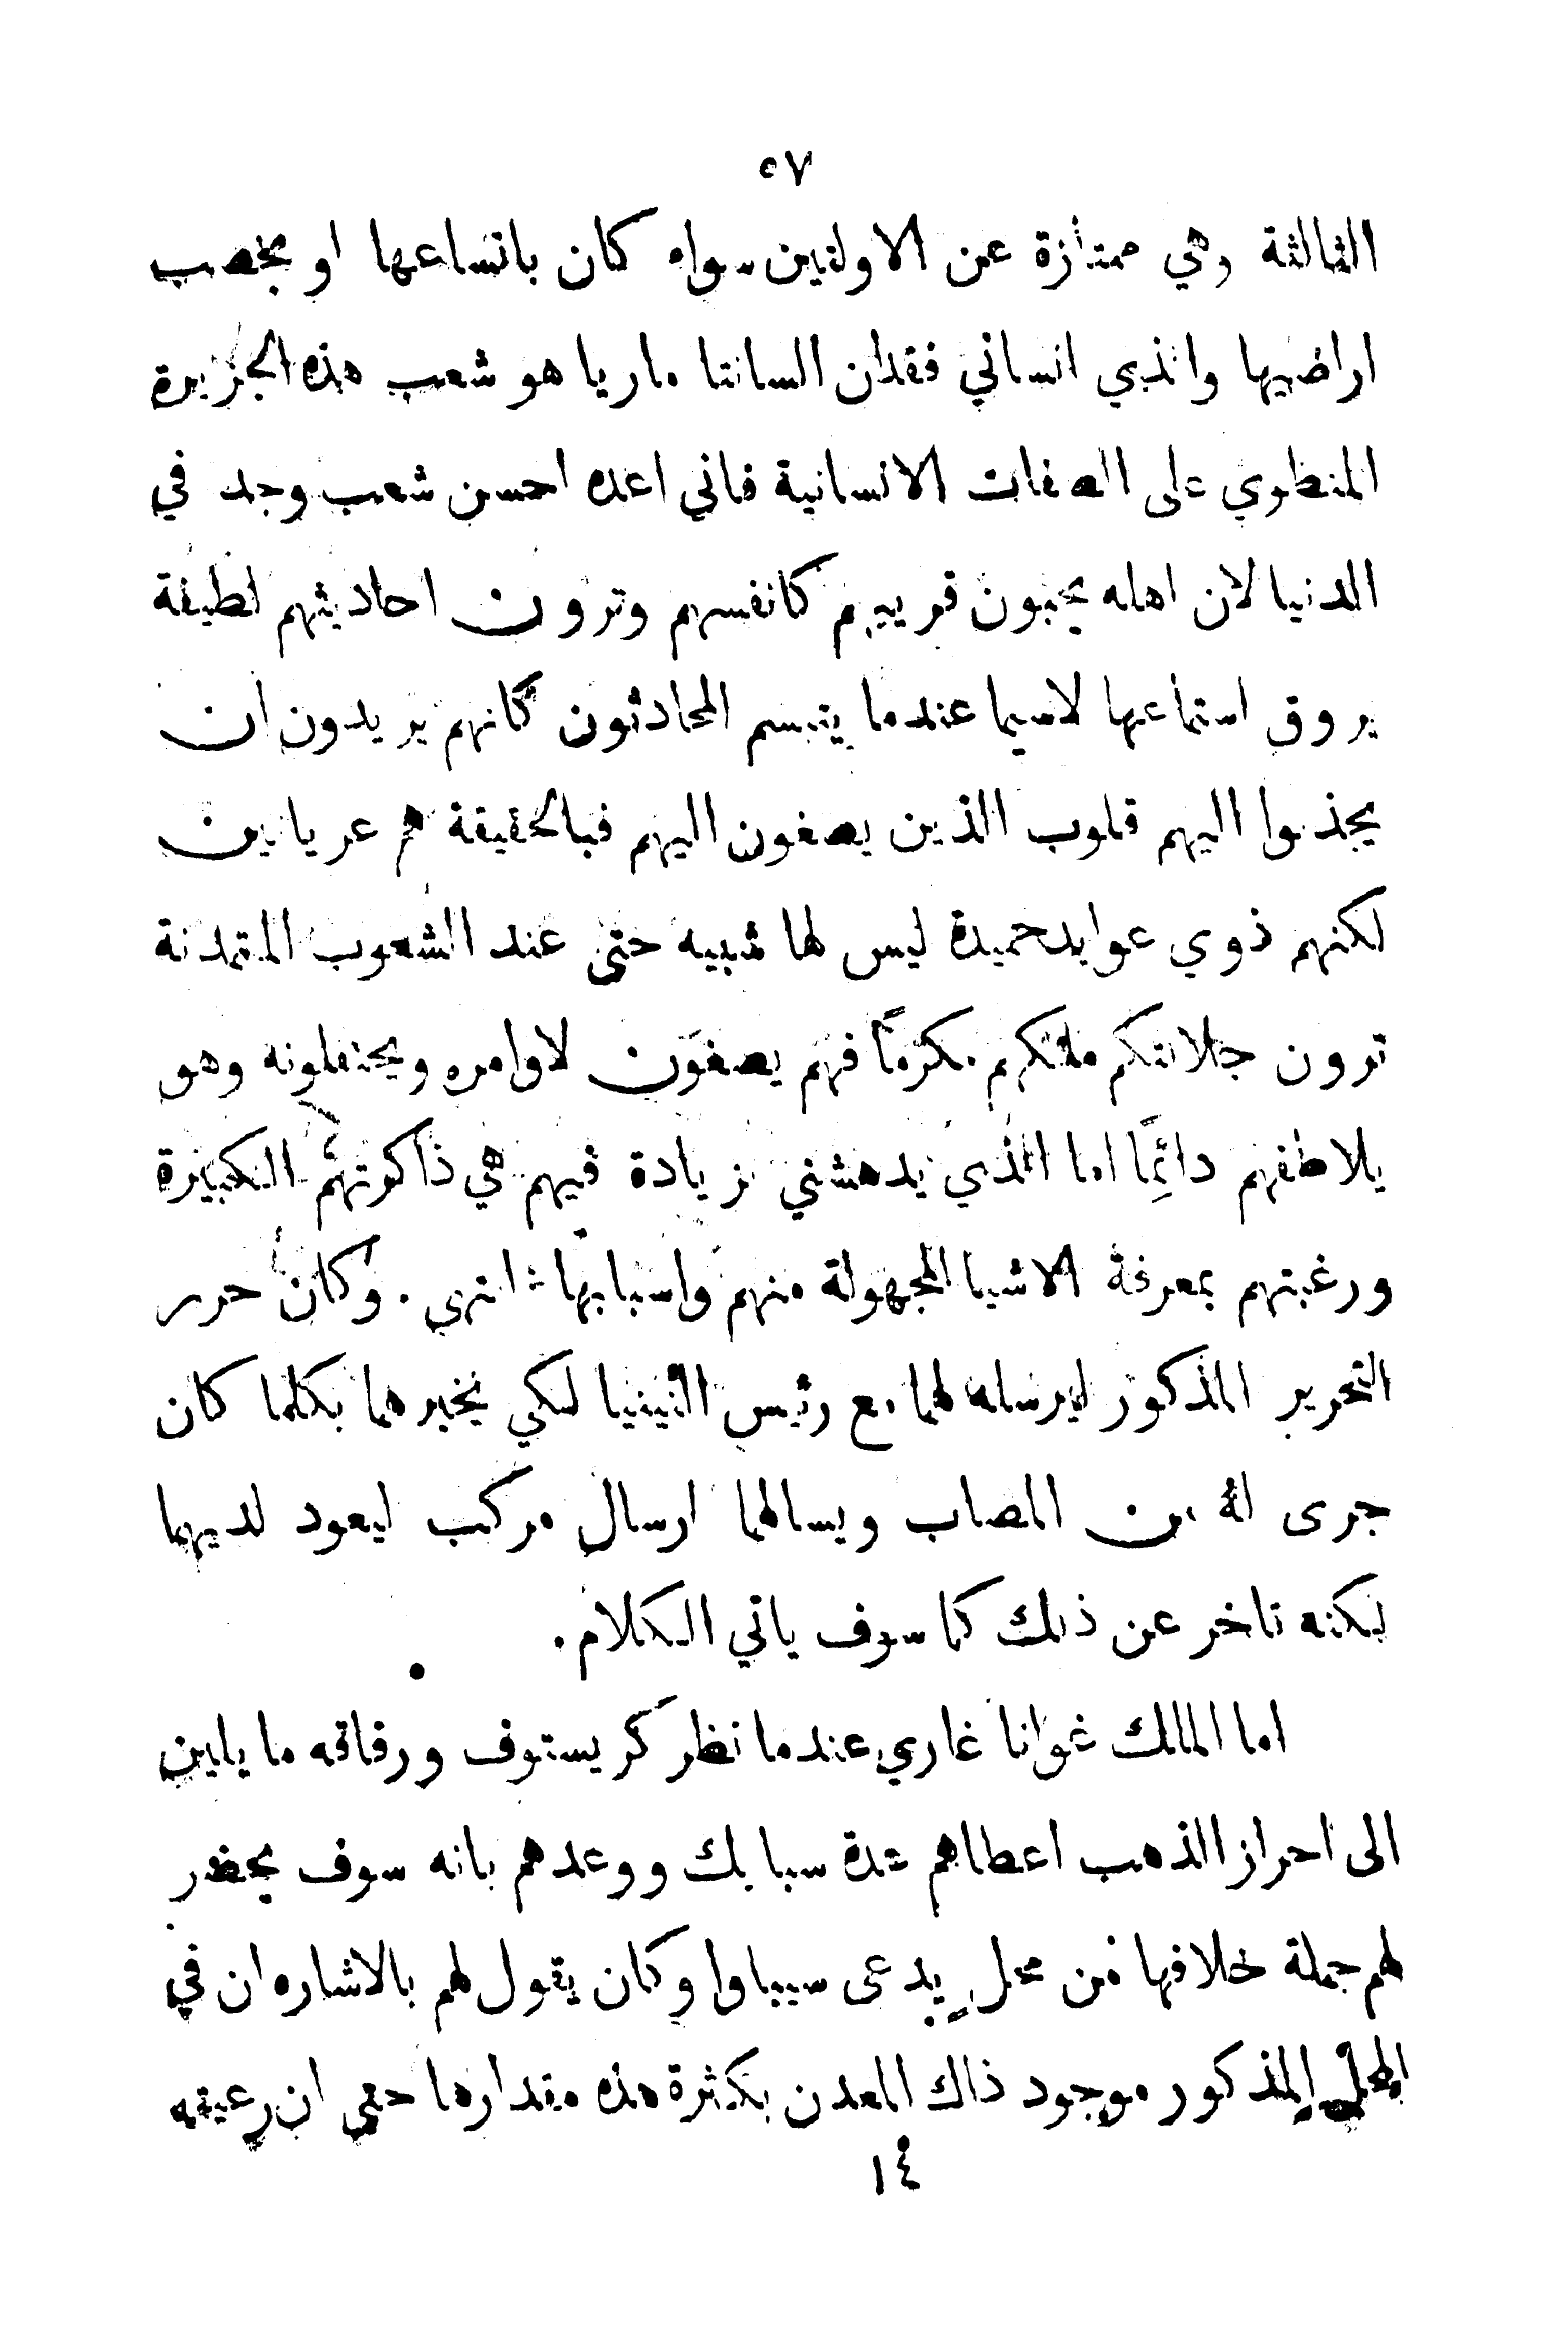 ٥٧
الثالثة وهي ممتازة عن الاولتين سواء كان باتساعها او بخصب
اراضيها والذي انساني فقدان السانتا ماريا هو شعب هذه الجزيرة
المنطوي على الصفات الانسانية فاني اعده احسن شعب وجد في
الدنيا لان اهله يحبون قريبهم كانفسهم وترون احاديثهم لطيفة
يروق استماعها لاسيما عندما يتبسم المحادثون كانهم يريدون ان
يجذبوا اليهم قلوب الذين يصغون اليهم فبالحقيقة هم عريانين
لكنهم ذوي عوايد حميدة ليس لها شبيه حتى عند الشعوب المتمدنة
ترون جلالتكم ملكهم مكرمًا فهم يصغون لاوامره ويحتفلونه وهو
يلاطفهم دائمًا اما الذي يدهشني بزيادة فيهم هي ذاكرتهم الكبيرة
ورغبتهم بمعرفة الاشيا المجهولة منهم واسبابها : انتهى . وكان حرر
التحرير المذكور ليرسله لهما مع رئيس النينيا لكي يخبرهما بكلما كان
جرى له من المصاب ويسالهما ارسال مركب ليعود لديهما
لكنه تاخر عن ذلك كما سوف ياتي الكلام .
اما المالك غوانا غاري عندما نظر كريستوف ورفاقه مايلين
الى احراز الذهب اعطاهم عدة سبايك ووعدهم بانه سوف يحضر
لهم جملة خلافها من محل يدعى سيباوا وكان يقول لهم بالاشاره ان في
المحل المذكور موجود ذاك المعدن بكثرة هذه مقدارها حتى ان رعيته
١٤